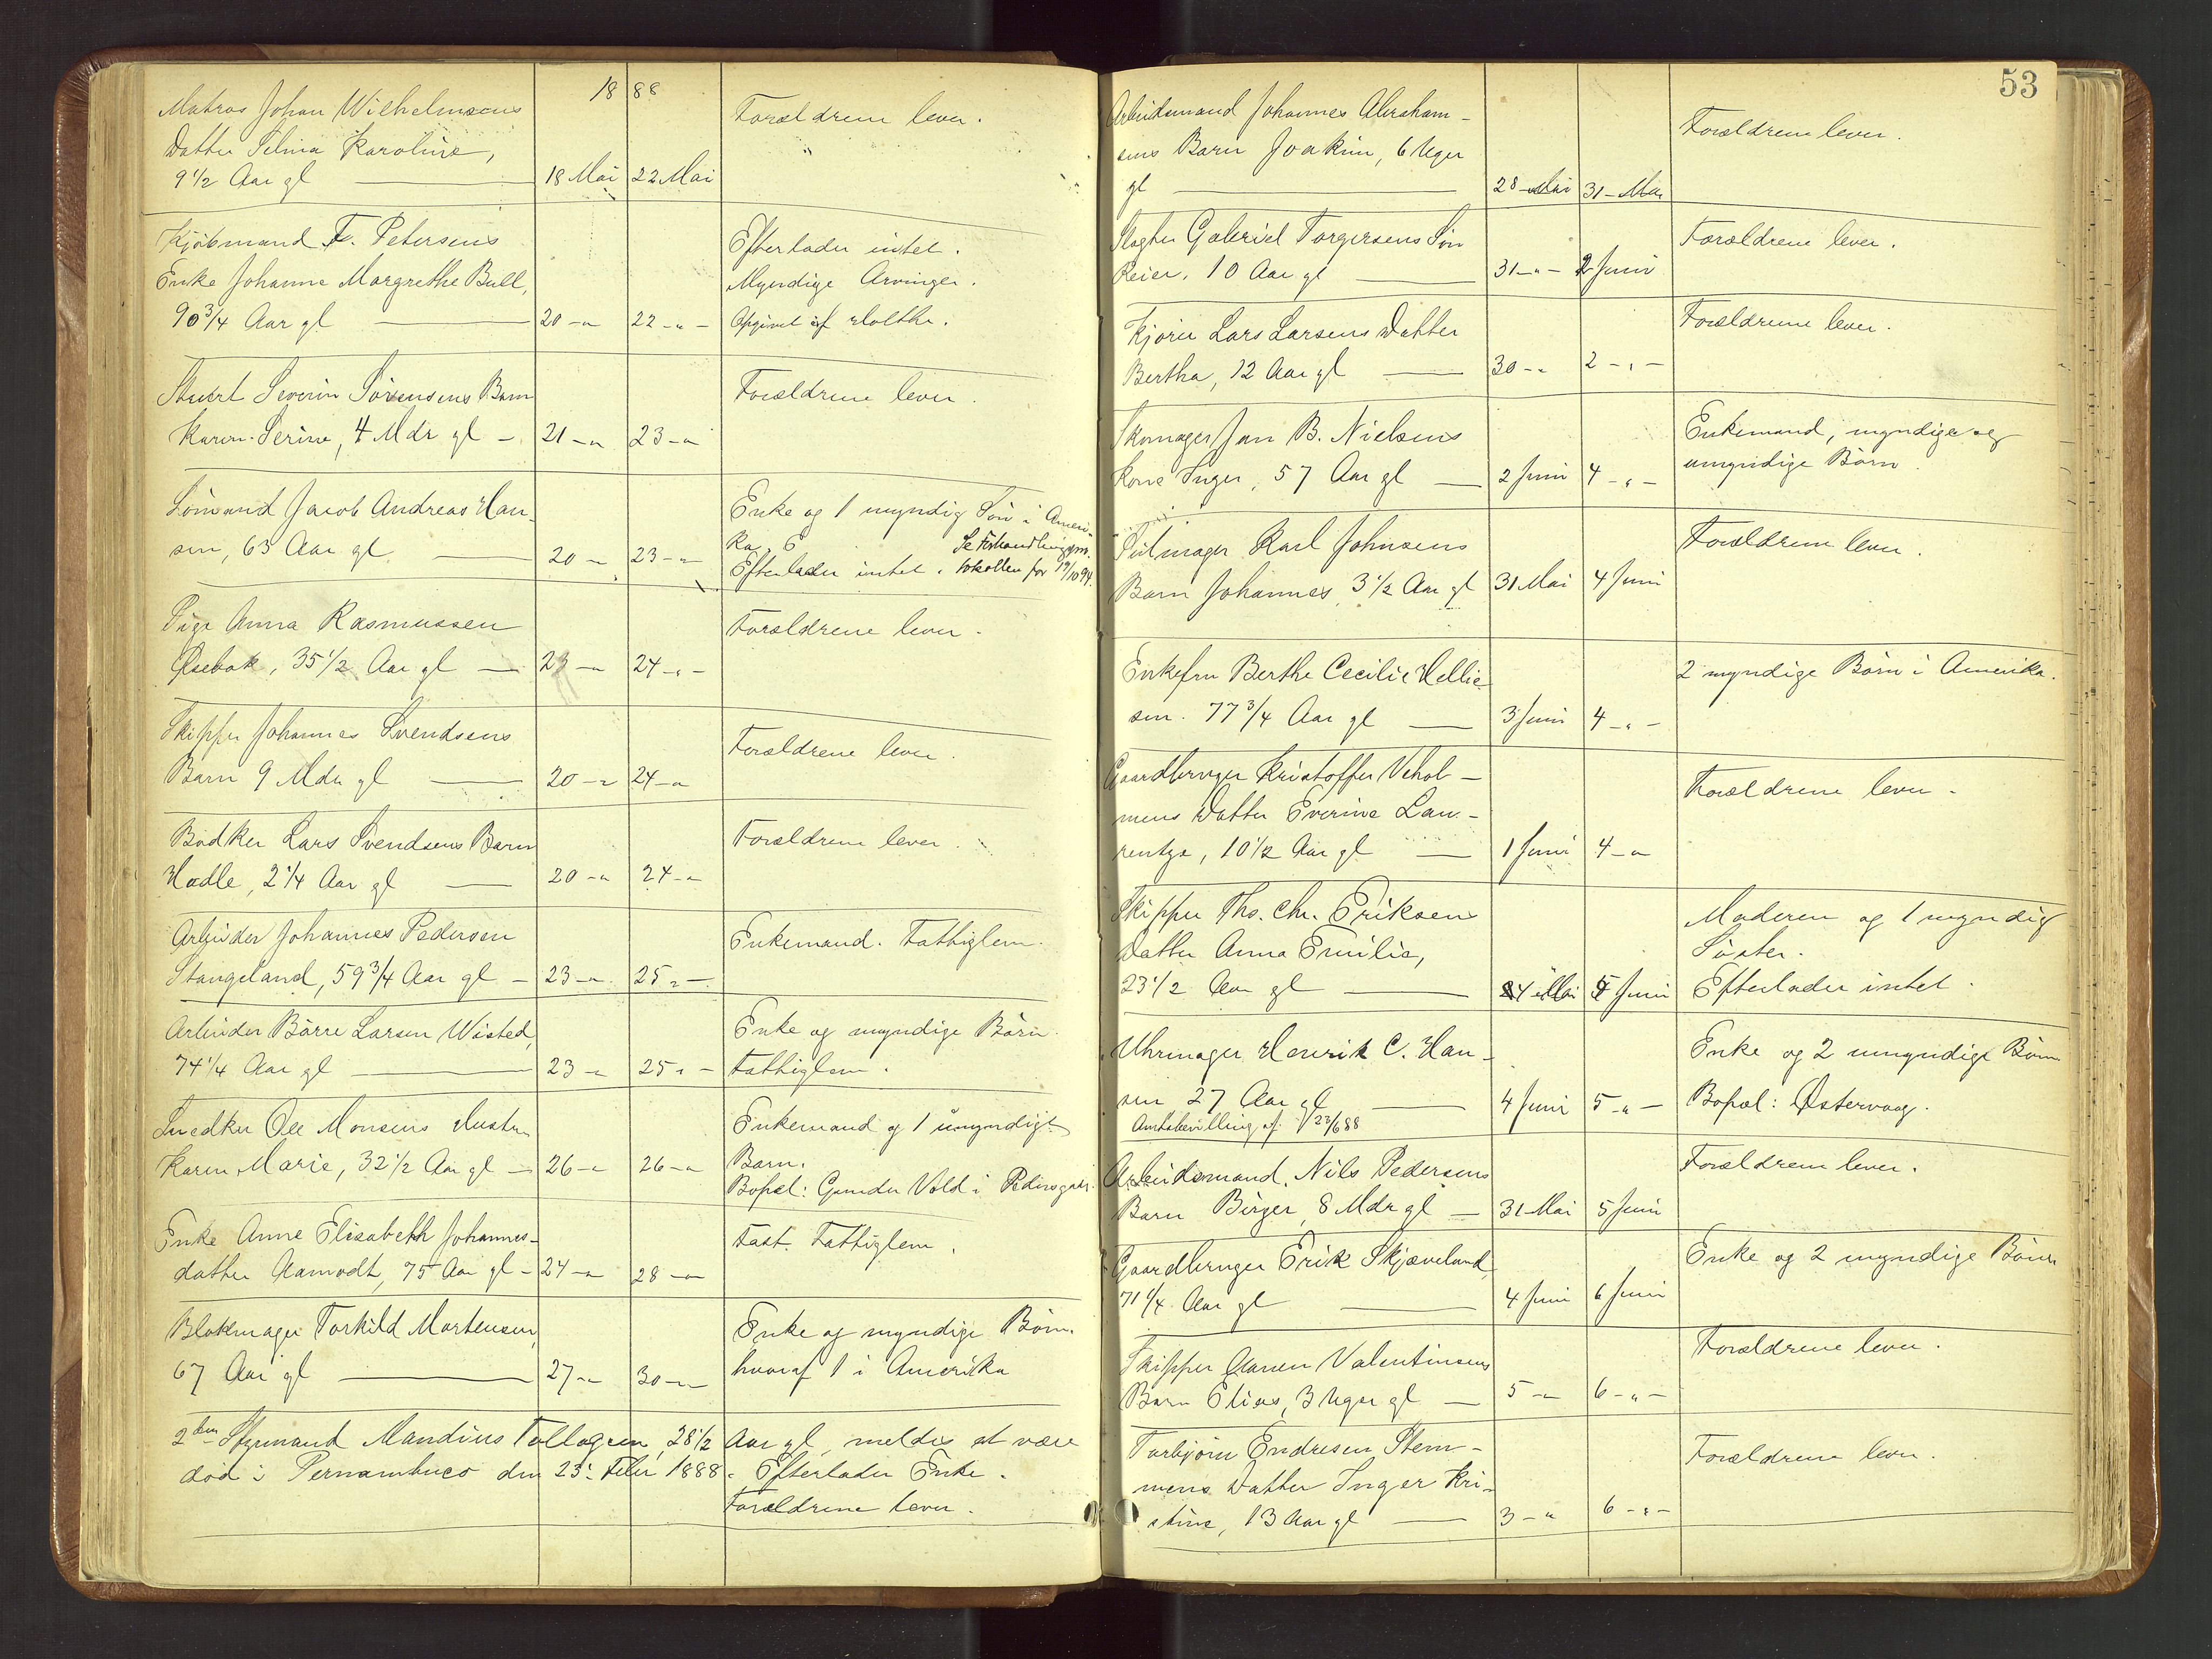 18 88
Matros Johan Wilhelmsens
Datter Selma Karoline,
9 1/2 Aar gl — 18 Mai 22 Mai
Forældrene lever.
Kjöbmand F. Petersens
Enke Johanne Margrethe Bull,
90 3/4 Aar gl — 20 -"- 22 -"-
Efterlader intet.
Myndige Arvinger.
Opgivet af Holthe.
Stuert Severin Sörensens Barn
Karen Serine, 4 Mdr gl — 21 -"- 23 -"-
Forældrene lever.
Sömand Jacob Andreas Han-
sen, 63 Aar gl — 20 -"- 23 -"-
Enke og 1 myndig Sön i Ameri-
ka.
Efterlader intet.
Se Forhandlingspro-
tokollen for 19/10 94.
Pige Anna Rasmussen
Øsebak, 35 1/2 Aar gl — 23 -"- 24 -"-
Forældrene lever.
Skipper Johannes Svendsens
Barn 9 Mdr gl — 20 -"- 24 -"-
Forældrene lever.
Bödker Lars Svendsens Barn
Hadle, 2 1/4 Aar gl — 20 -"- 24 -"-
Forældrene lever.
Arbeider Johannes Pedersen
Stangeland, 59 3/4 Aar gl — 23 -"- 25 -"-
Enkemand. Fattiglem.
Arbeider Börre Larsen Wisted,
74 1/4 Aar gl — 23 -"- 25 -"-
Enke og myndige Börn.
Fattiglem.
Snedker Ole Monsens Hustru
Karen Marie, 32 1/2 Aar gl — 26 -"- 26 -"-
Enkemand og 1 umyndigt
Barn.
Bopæl: Gunder Vold i Pedersgaden.
Enke Anne Elisabeth Johannes-
datter Aamodt, 75 Aar gl — 24 -"- 28 -"-
Fast. Fattiglem.
Blokmager Torkild Mortensen,
67 Aar gl — 27 -"- 30 -"-
Enke og myndige Börn.
hvoraf 1 i Amerika
2den Styrmand Mandius Tollagsen, 28 1/2 Aar gl, meldes at være
död i Pernambuco den 23. Febr 1888. Efterlader Enke.
Forældrene lever.
53
Arbeidsmand Johannes Abraham-
sens Barn Joakim, 6 Uger
gl — 28 Mai 31 Mai
Forældrene lever.
Slagter Gabriel Torgersens Sön
Reier, 10 Aar gl — 31 -"- 2 Juni
Forældrene lever.
Kjörer Lars Larsens Datter
Bertha, 12 Aar gl — 30 -"- 2 -"-
Forældrene lever.
Skomager Jan B. Nielsens
Kone Inger, 57 Aar gl — 2 Juni 4 -"-
Enkemand, myndige og
umyndige Börn.
Seilmager Karl Johnsens
Barn Johannes 3 1/2 Aar gl 31 Mai 4 Juni
Forældrene lever.
Enkefru Berthe Cecilie Hellie-
sen. 77 3/4 Aar gl — 3 Juni 4 -"-
2 myndige Börn i Amerika.
Gaardbruger Kristoffer Vehol-
mens Datter Everine Lau-
rentze, 10 1/2 Aar gl — 1 Juni 4 -"-
Forældrene lever.
Skipper Ths. Chr. Eriksens
Datter Anna Emilie,
23 1/2 Aar gl — 24 Mai 5 Juni
Moderen og 1 myndig
Söster.
Efterlader intet.
Uhrmager Henrik C. Han-
sen 27 Aar gl — 4 Juni 5 -"-
Amtsbevilling af 23/6 88
Enke og 2 umyndige Börn
Bopæl: Østervaag.
Arbeidsmand Nils Pedersens
Barn Birger, 8 Mdr gl — 31 Mai 5 Juni
Forældrene lever.
Gaardbruger Erik Skjæveland,
71 1/4 Aar gl — 4 Juni 6 Juni
Enke og 2 myndige Börn
Skipper Aanen Valentinsens
Barn Elias, 3 Uger gl — 5 -"- 6 -"-
Forældrene lever.
Torbjörn Endresen Stem-
mens Datter Inger Kri-
stine, 13 Aar gl — 3 -"- 6 -"-
Forældrene lever.